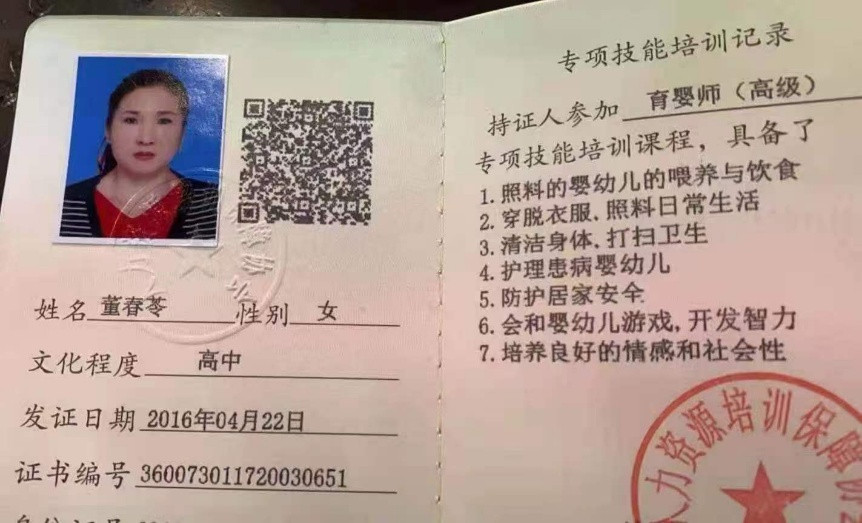 姓名 董春苓 性别 女
文化程度 高中
发证日期 2016年04月22日
证书编号 360073011720030651
专项技能培训记录
持证人参加 育婴师（高级）
专项技能培训课程，具备了
1.照料的婴幼儿的喂养与饮食
2.穿脱衣服.照料日常生活
3.清洁身体.打扫卫生
4.护理患病婴幼儿
5.防护居家安全
6.会和婴幼儿游戏,开发智力
7.培养良好的情感和社会性
人力资源培训保障